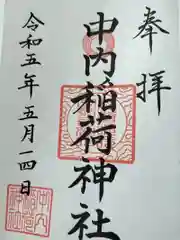 奉拝
中内稲荷神社
令和五年五月一四日